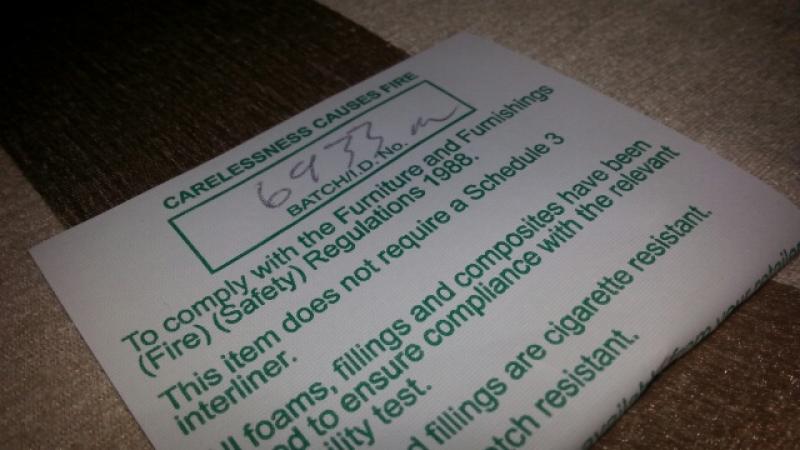 CARELESSNESS CAUSES FIRE
6933
BATCH/I.D. No.
To comply with the Furniture and Furnishings
(Fire) (Safety) Regulations 1988.
This item does not require a Schedule 3
interliner.
foams, fillings and composites have been
to ensure compliance with the relevant
test.
fillings are cigarette resistant.
resistant.
from your